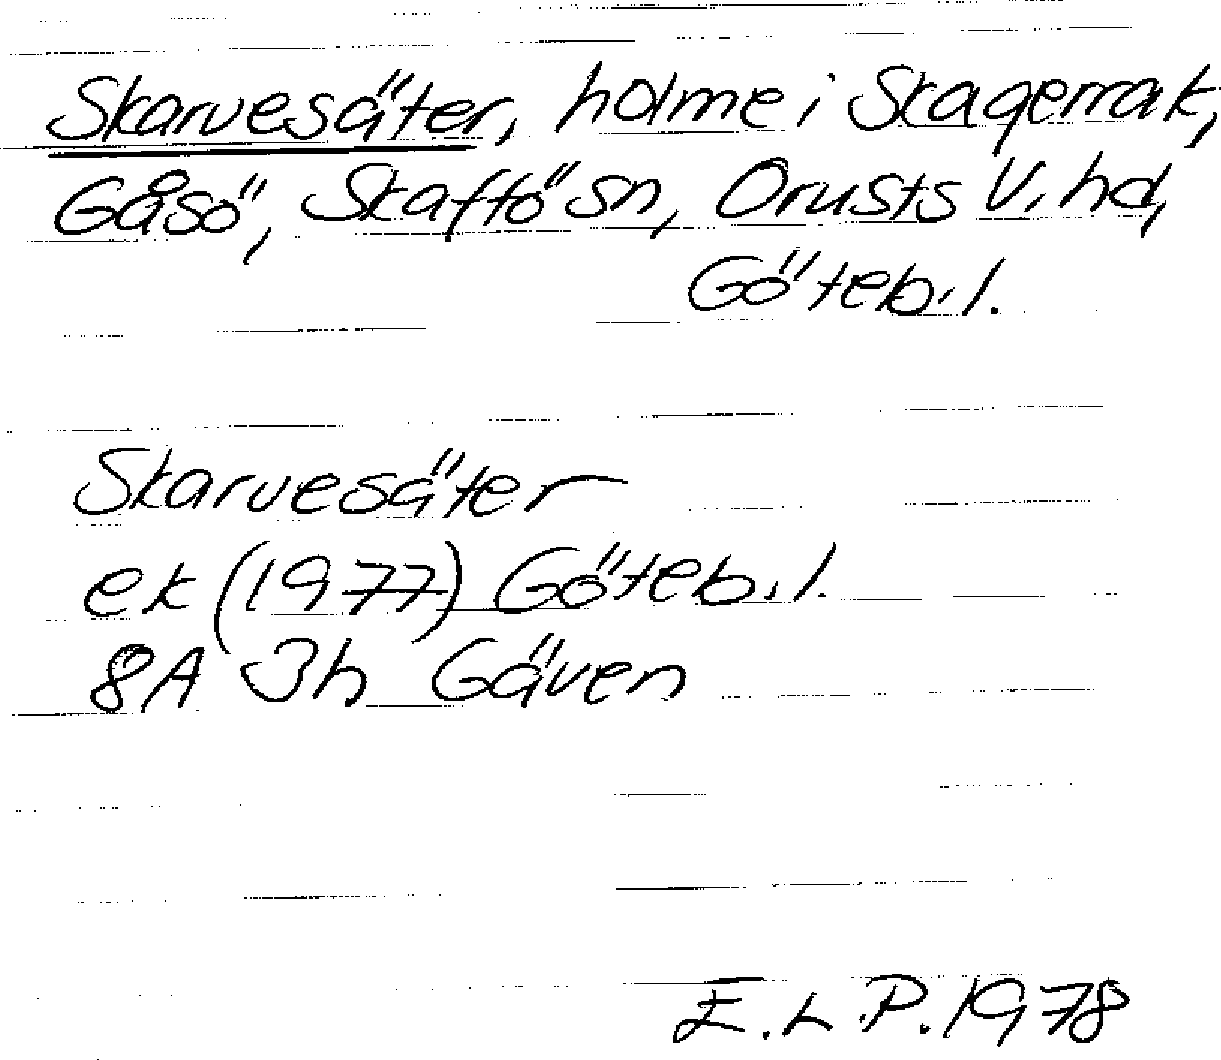 Skarvesäter, holme i Skagerrak,
Gåsö, Skaftö sn, Orusts V. hd,
Göteb. l.
Skarvesäter
ek (1977) Göteb. l.
8A 3h Gäven
E.L.P. 1978